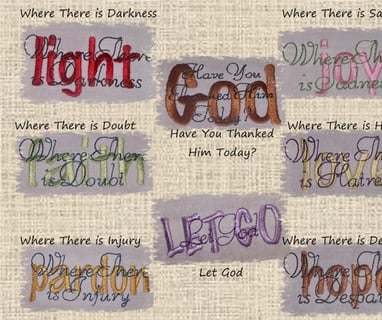 Where There is Darkness
light
Where There
is Darkness
Where There is Doubt
faith
Where There
is Doubt
Where There is Injury
pardon
Where There
is Injury
God
Have You
Thanked Him
Today?
Have You Thanked
Him Today?
LET GO
Let God
Let God
Where There is Sa
joy
Where There
is Sadne
Where There is H
love
Where The
is Hatre
Where There is De
hope
Where The
is Despai